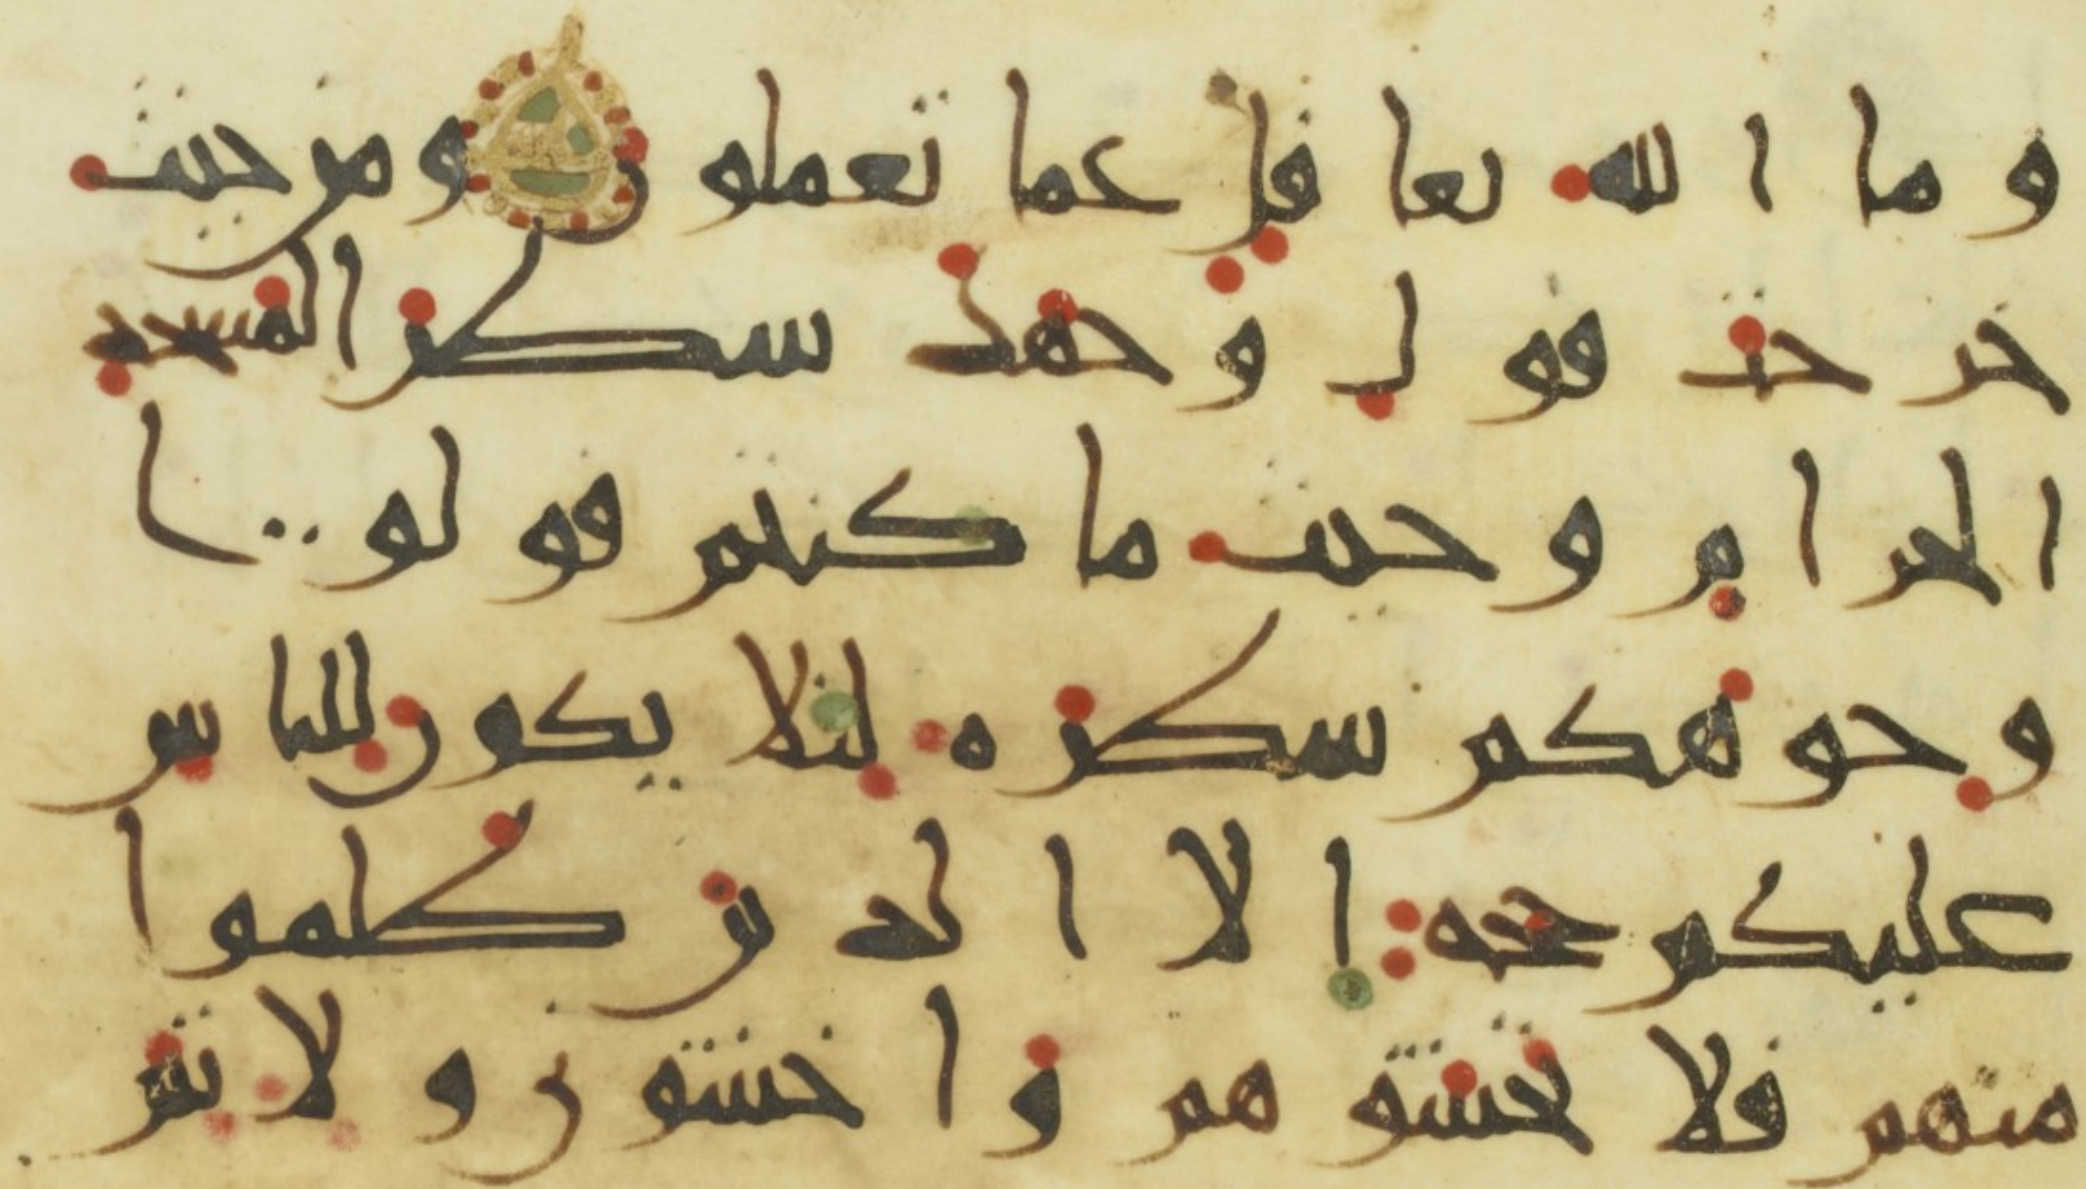 وما الله بغافل عما تعملون ومن حيث
خرجت فول وجهك شطر المسجد
الحرام وحيث ما كنتم فولوا
وجوهكم شطره لئلا يكون للناس
عليكم حجة إلا الذين ظلموا
منهم فلا تخشوهم واخشون ولا تم